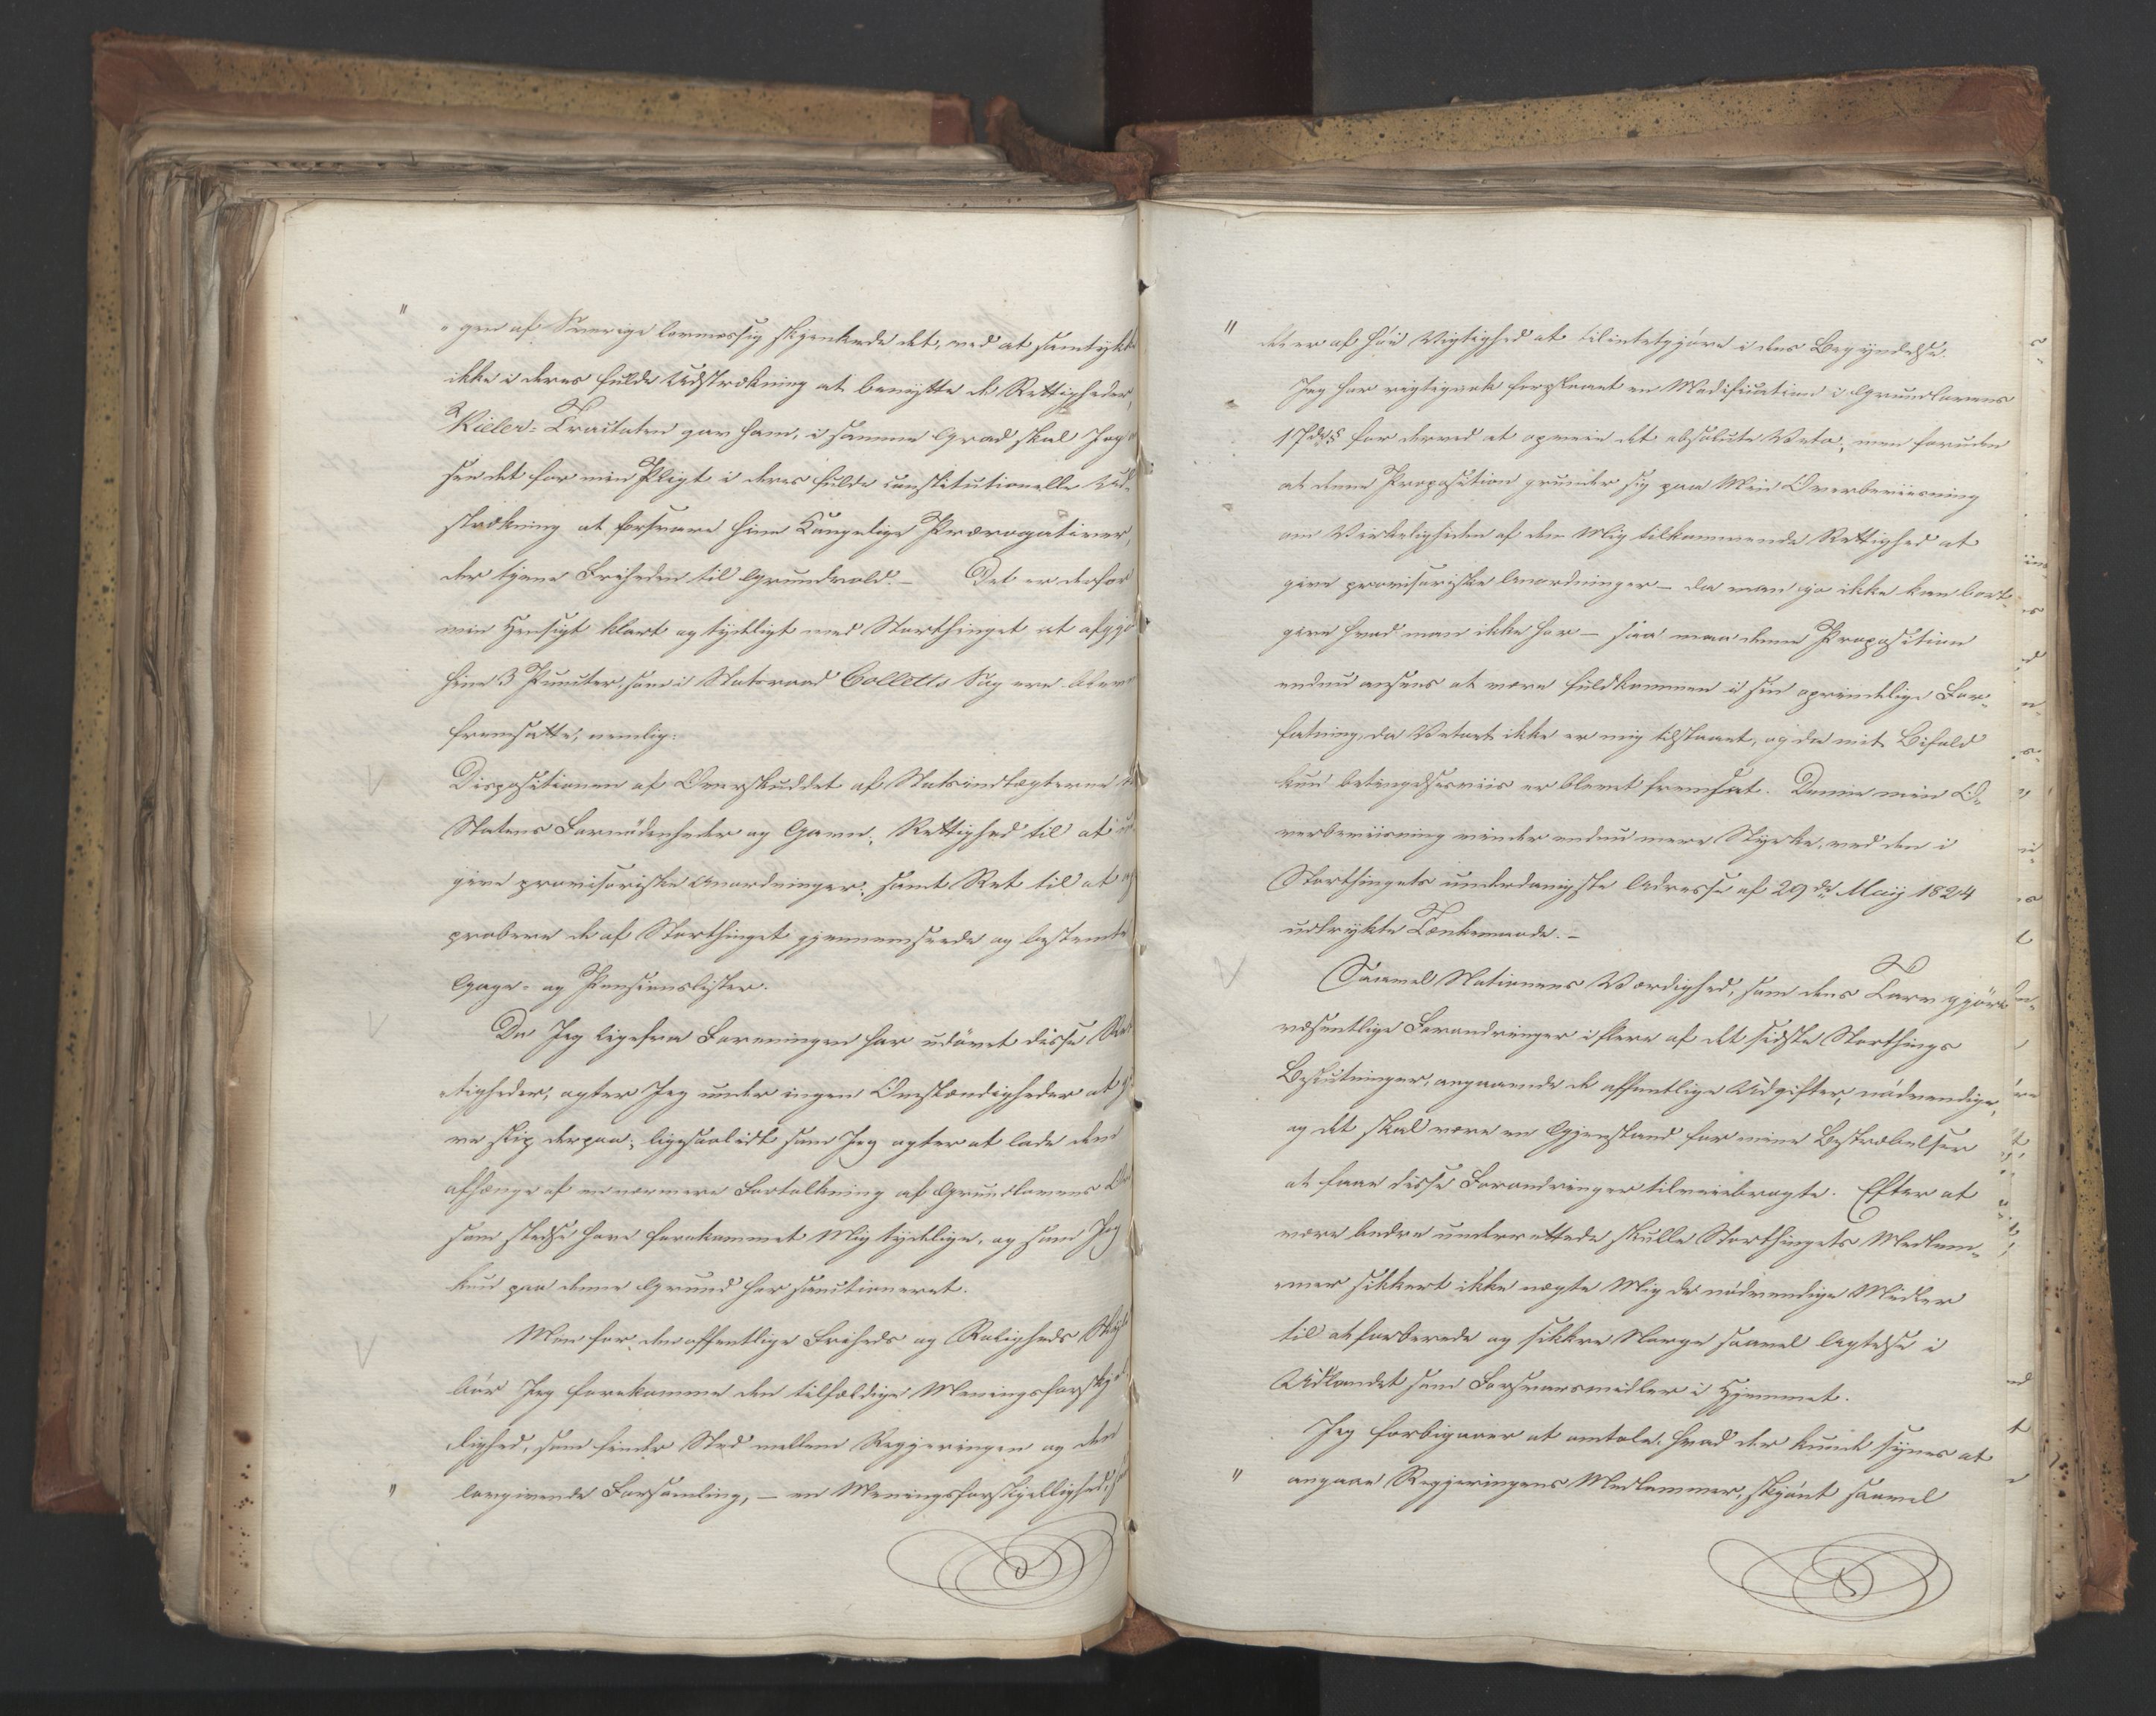 "
"gen af Sverrige lovmessig skjenkede det, ved at samtykke
ikke i deres fulde Udstrækning at benytte de Rettigheder,
Kieler-Tractaten gav ham, i samme Grad skal Jeg
see det for min Pligt i deres fulde constitutionelle Ud-
strækning at forsvare hine Kongelige Prærogativer,
der tjene Friheden til Grundvold. — Det er derfor
min Hensigt klart og tydeligt med Storthinget at afgjö
hine 3 Puncter, som i Statsraad Colletts Sag ere bleven
fremsatte, nemlig:
Dispositionen af Overskuddet af Statsindtægterne til
Statens Fornödenheder og Gavn, Rettighed til at ud-
give provisoriske Anordninger, samt Ret til at ap
probere de af Storthinget gjennemseede og bestemte
Gage- og Pensionslister.
Da Jeg ligefra Foreningen har udövet disse Ret
tigheder, agter Jeg under ingen Omstændigheder at gi
ve slip derpaa; ligesaalidt som Jeg agter at lade dem
afhænge af en nærmere Fortolkning af Grundlovens Or
som stedse have forekommet Mig tydelige, og som Jeg
kun paa denne Grund har sanctioneret.
Men for den offentlige Friheds og Roligheds Skyld
bör Jeg forekomme den tilfældige Meningsforskjel
lighed, som finder Sted mellem Regjeringen og den
" lovgivende Forsamling, — en Meningsforskjellighed,
" det er af höi Vigtighed at tilintetgjöre i dens Begyndelse.
Jeg har rigtignok foreslaaet en Modification i Grundlovens
17de § for derved at opveie det absolute Veto; men foruden
at denne Proposition grunder sig paa Min Overbeviisning
om Virkeligheden af den Mig tilkommende Rettighed at
give provisoriske Anordninger — da man jo ikke kan bort-
give hvad man ikke har — saa maa denne Proposition
endnu ansees at være fuldkommen i sin oprindelige For-
fatning, da Vetoet ikke er mig tilstaaet, og da mit Bifald
kun betingelsesviis er blevet fremsat. Denne min O-
verbeviisning vinder endnu mere Styrke, ved den i
Storthingets underdanigste Adresse af 29de Maij 1824
udtrykte Tænkemaade. —
Saavel Nationens Værdighed, som dens Tarv gjöre
væsentlige Forandringer i flere af det sidste Storthings
Beslutninger, angaaende de offentlige Udgifter, nödvendige,
og det skal være en Gjenstand for mine Bestræbelser
at faae disse Forandringer tilveiebragte. Efter at
være bedre underrettede skulle Storthingets Medlem-
mer sikkert ikke nægte Mig de nödvendige Midler
til at forberede og sikkre Norge saavel Agtelse i
Udlandet som Forsvarsmidler i Hjemmet.
Jeg forbigaaer at omtale, hvad der kunde synes at
" angaae Regjeringens Medlemmer, skjönt saavel